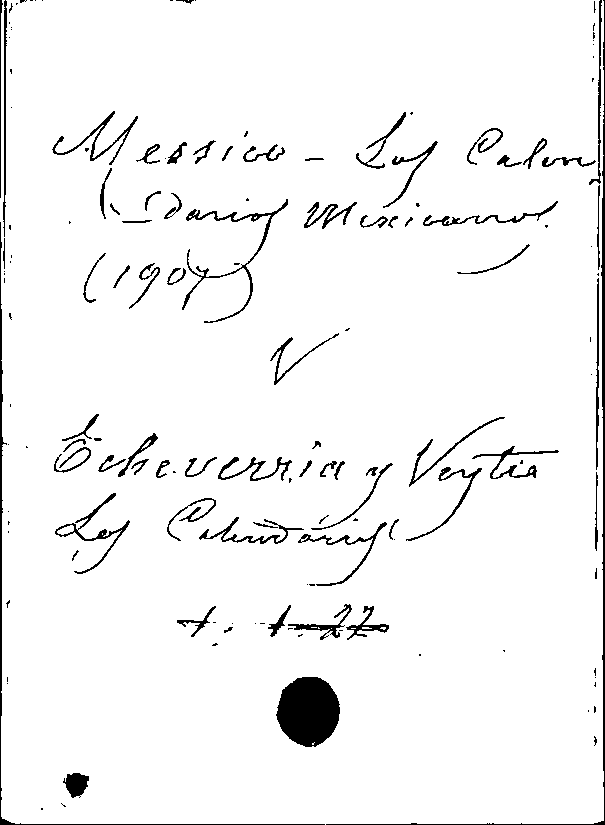 Messico - Los Calen
darios Mexicanos.
(1907)
V
Echeverria y Veytia
Los Calendarios